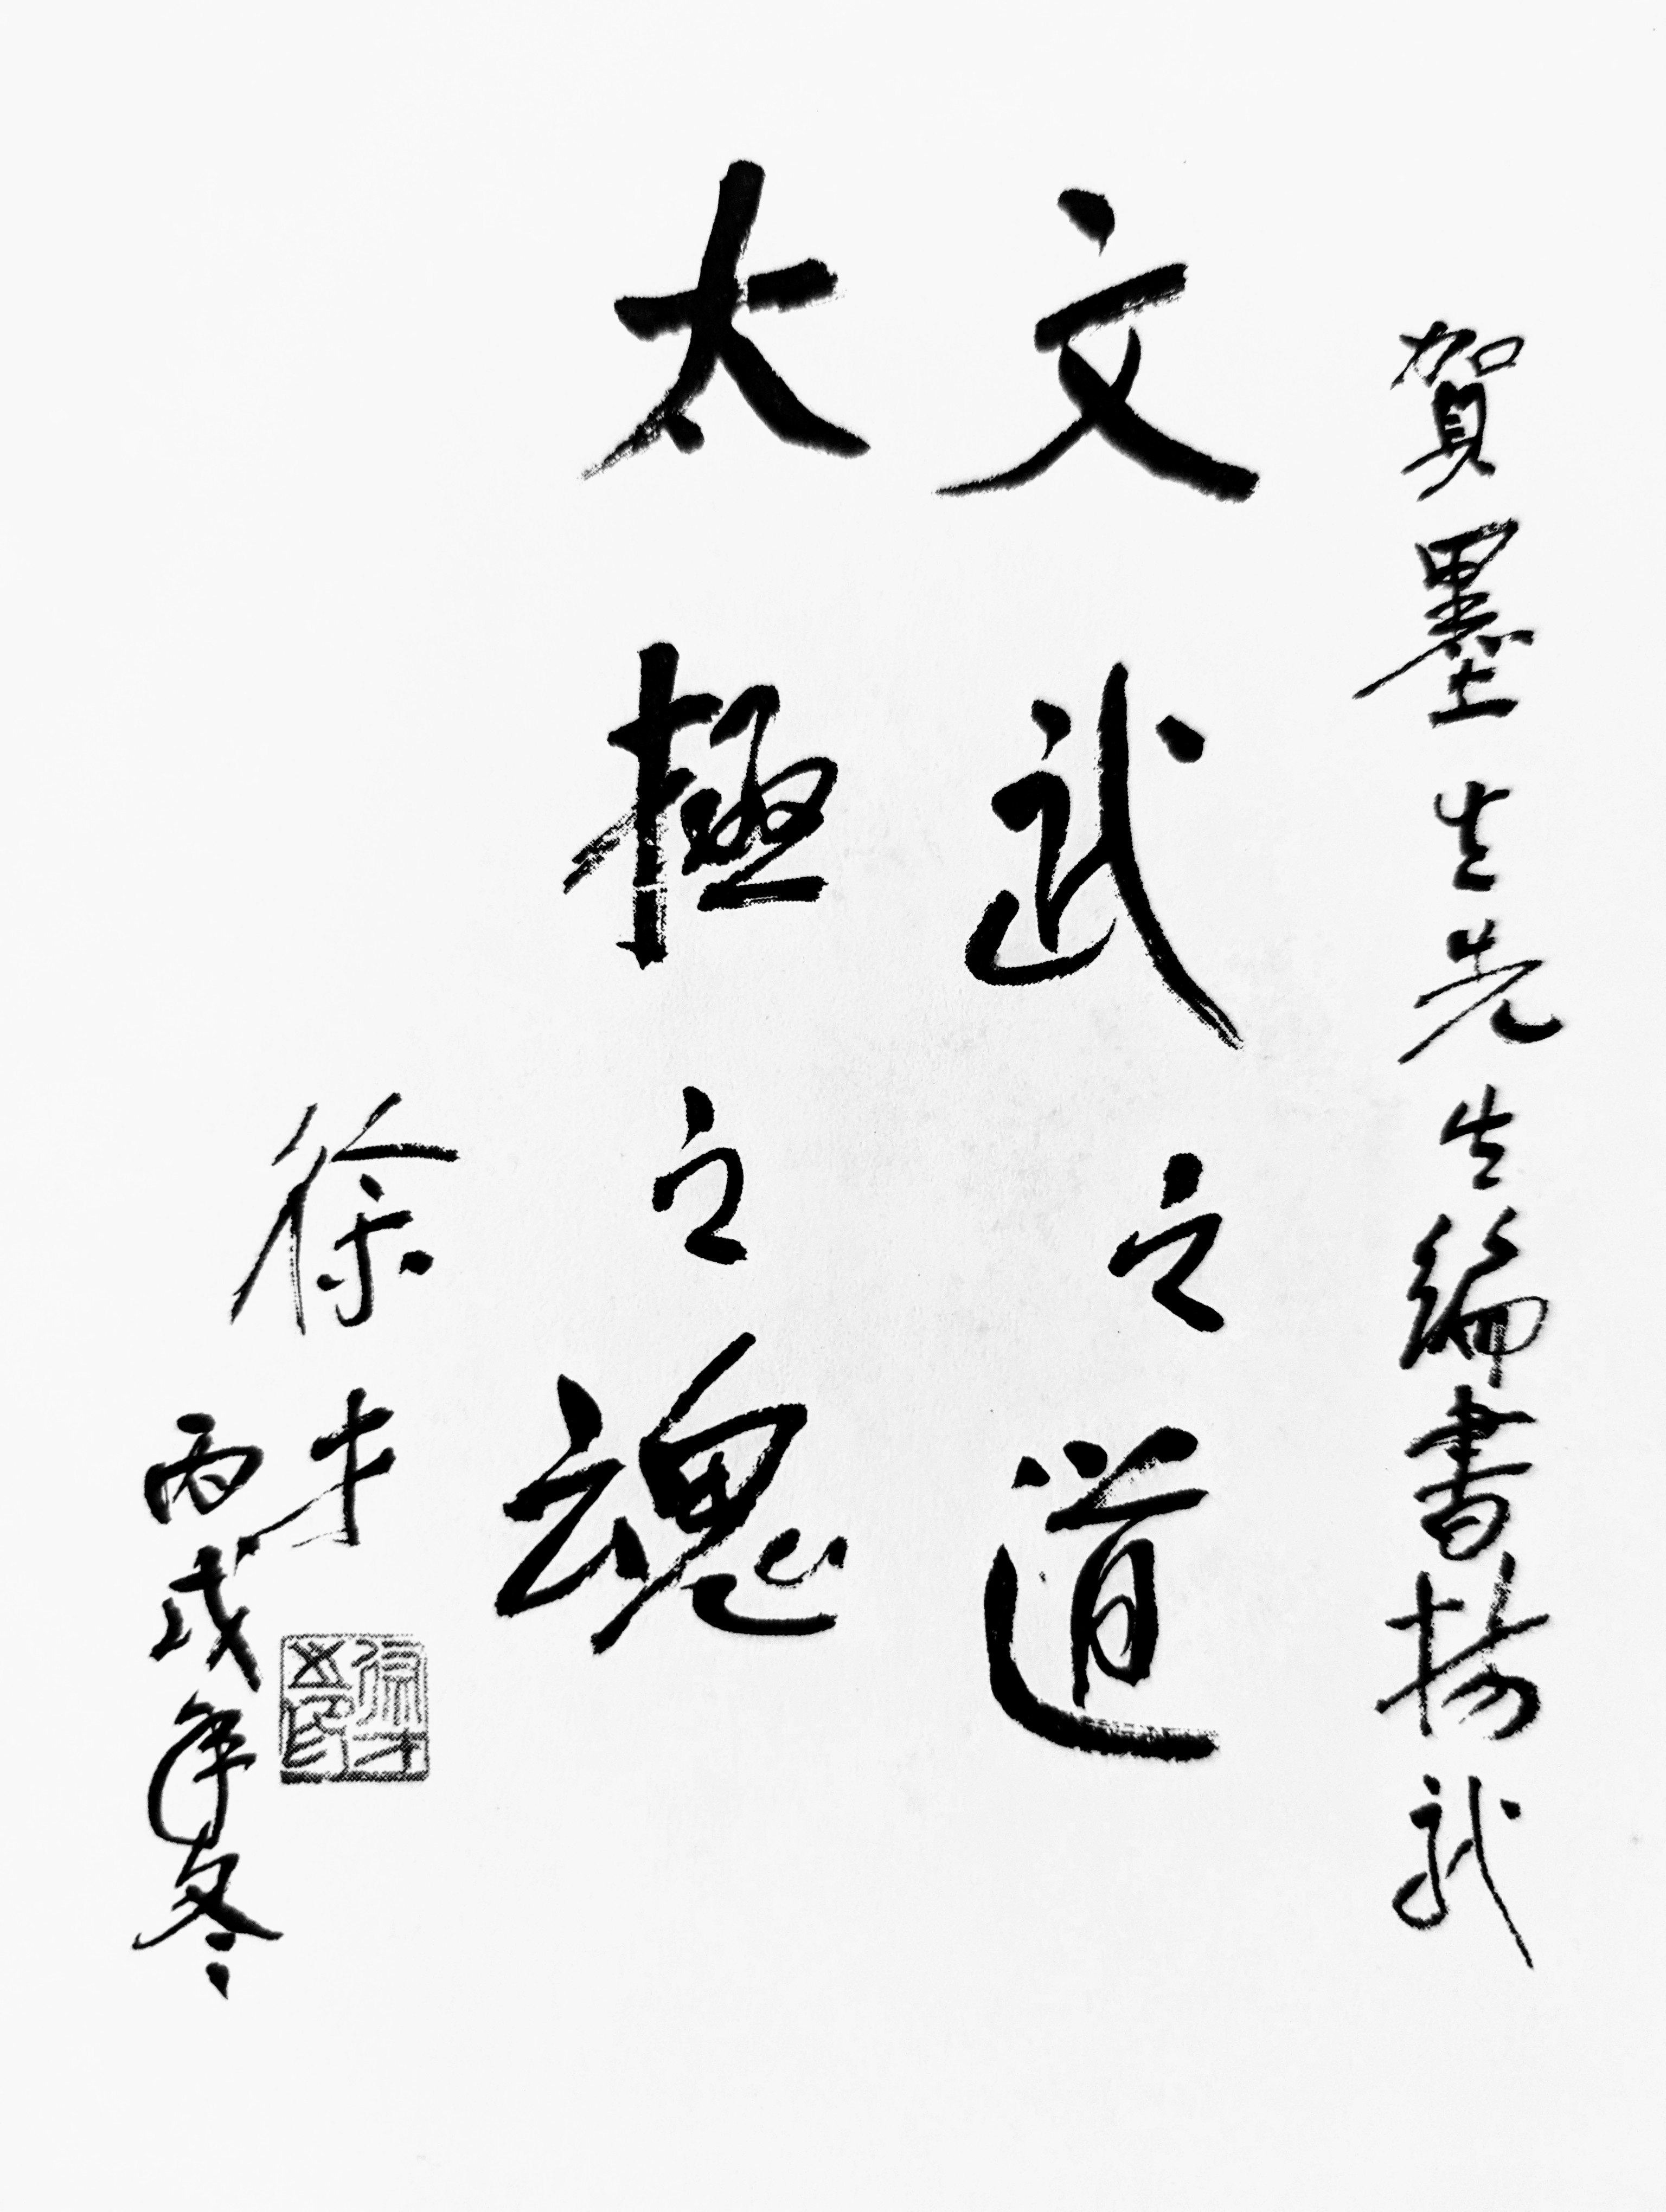 賀墨生先生編書揚武
文武之道
太極之魂
徐才
丙戌年冬
徐才